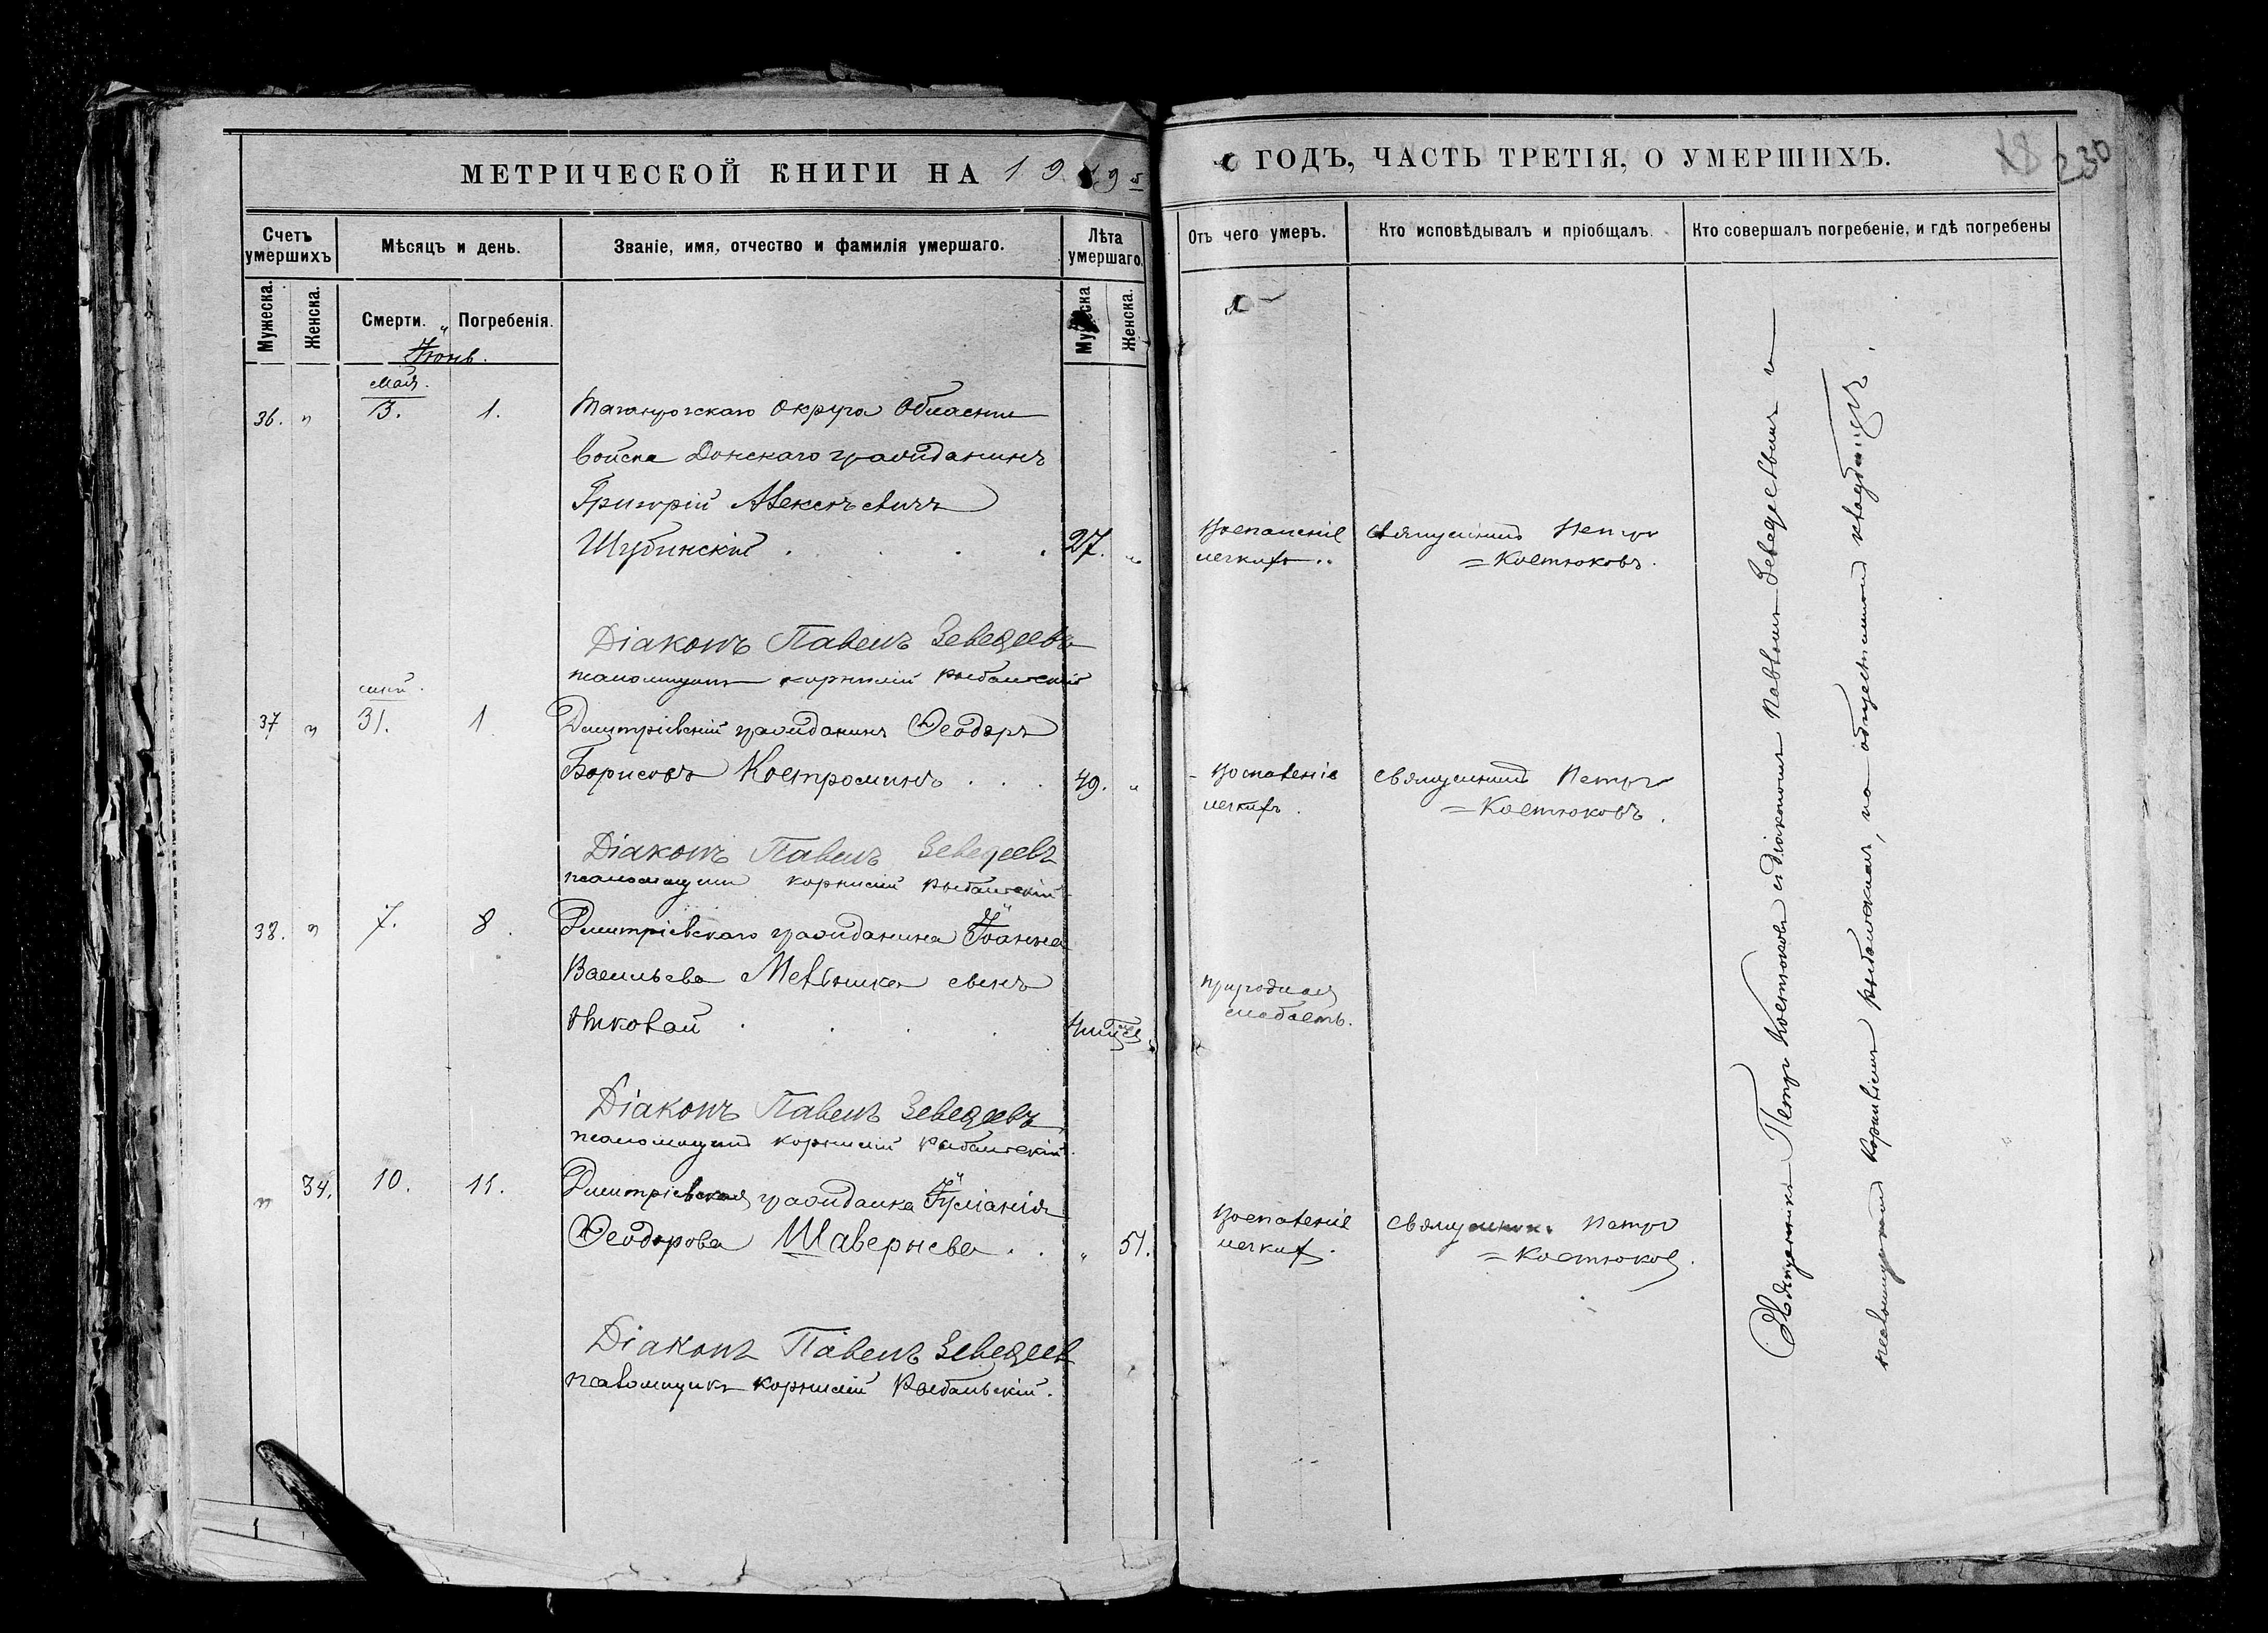 МЕТРИЧЕСКОЙ КНИГИ НА 1919 й
ГОДЪ, ЧАСТЬ ТРЕТІЯ, О УМЕРШИХЪ.
230
Счетъ умершихъ
Мѣсяцъ и день.
Званіе, имя, отчество и фамилія умершаго.
Лѣта умершаго.
Отъ чего умеръ.
Кто исповѣдывалъ и пріобщалъ.
Кто совершалъ погребеніе, и гдѣ погребены
Мужеска.
Женска.
Смерти.
Погребенія.
Мужеска
Женска.
Іюнь.
мая.
36. " 3. 1. Таганрогскаго округа Области
Войска Донскаго гражданинъ
Григорій Алексѣевичъ
Шубинскій . . . . 27. "
Воспаленіе
легкихъ..
Священникъ Петръ
= Костюковъ.
Діаконъ Павелъ Зеведеевъ
псаломщикъ Корнилій Рыбальскій
мая.
37 " 31. 1 Дмитріевскій гражданинъ Ѳеодоръ
Борисовъ Костроминъ . . . 49. "
Воспаленіе
легкихъ.
Священникъ Петръ
= Костюковъ.
Діаконъ Павелъ Зеведеевъ
псаломщикъ Корнилій Рыбальскій
38. " 7. 8. Дмитріевскаго гражданина Іоанна
Васильева Мельника сынъ
Николай . . . .
природная
слабость.
Діаконъ Павелъ Зеведеевъ
псаломщикъ Корнилій Рыбальскій.
" 34. 10. 11. Дмитріевская гражданка Іуліанія
Ѳеодорова Шавернева . . " 51.
Воспаленіе
легкихъ.
Священник. Петръ
= Костюков.
Діаконъ Павелъ Зеведеев
псаломщикъ Корнилій Рыбальскій.
Священникъ Петръ Костюковъ съ діакономъ Павломъ Зеведеевымъ и
псаломщикомъ Корниліемъ Рыбальскимъ, на общественномъ кладбищѣ.